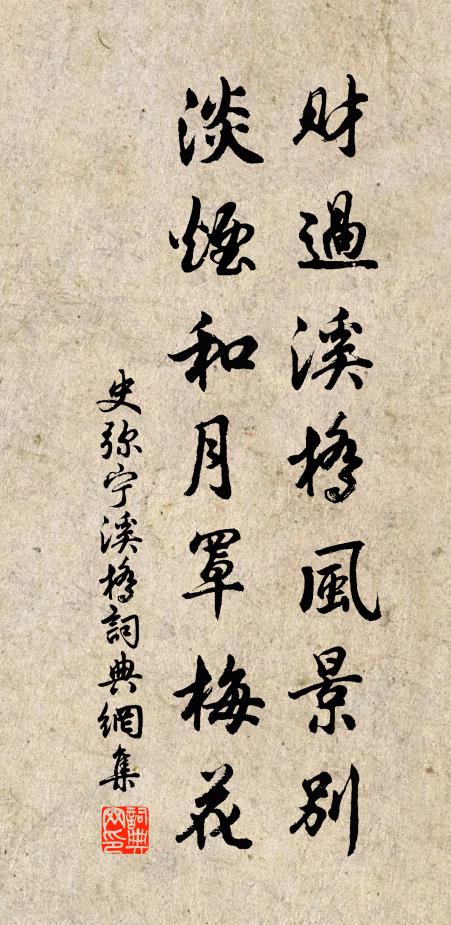 財過溪橋風景別
淡煙和月罩梅花
史弥宁溪橋詞典網集
詞典网印